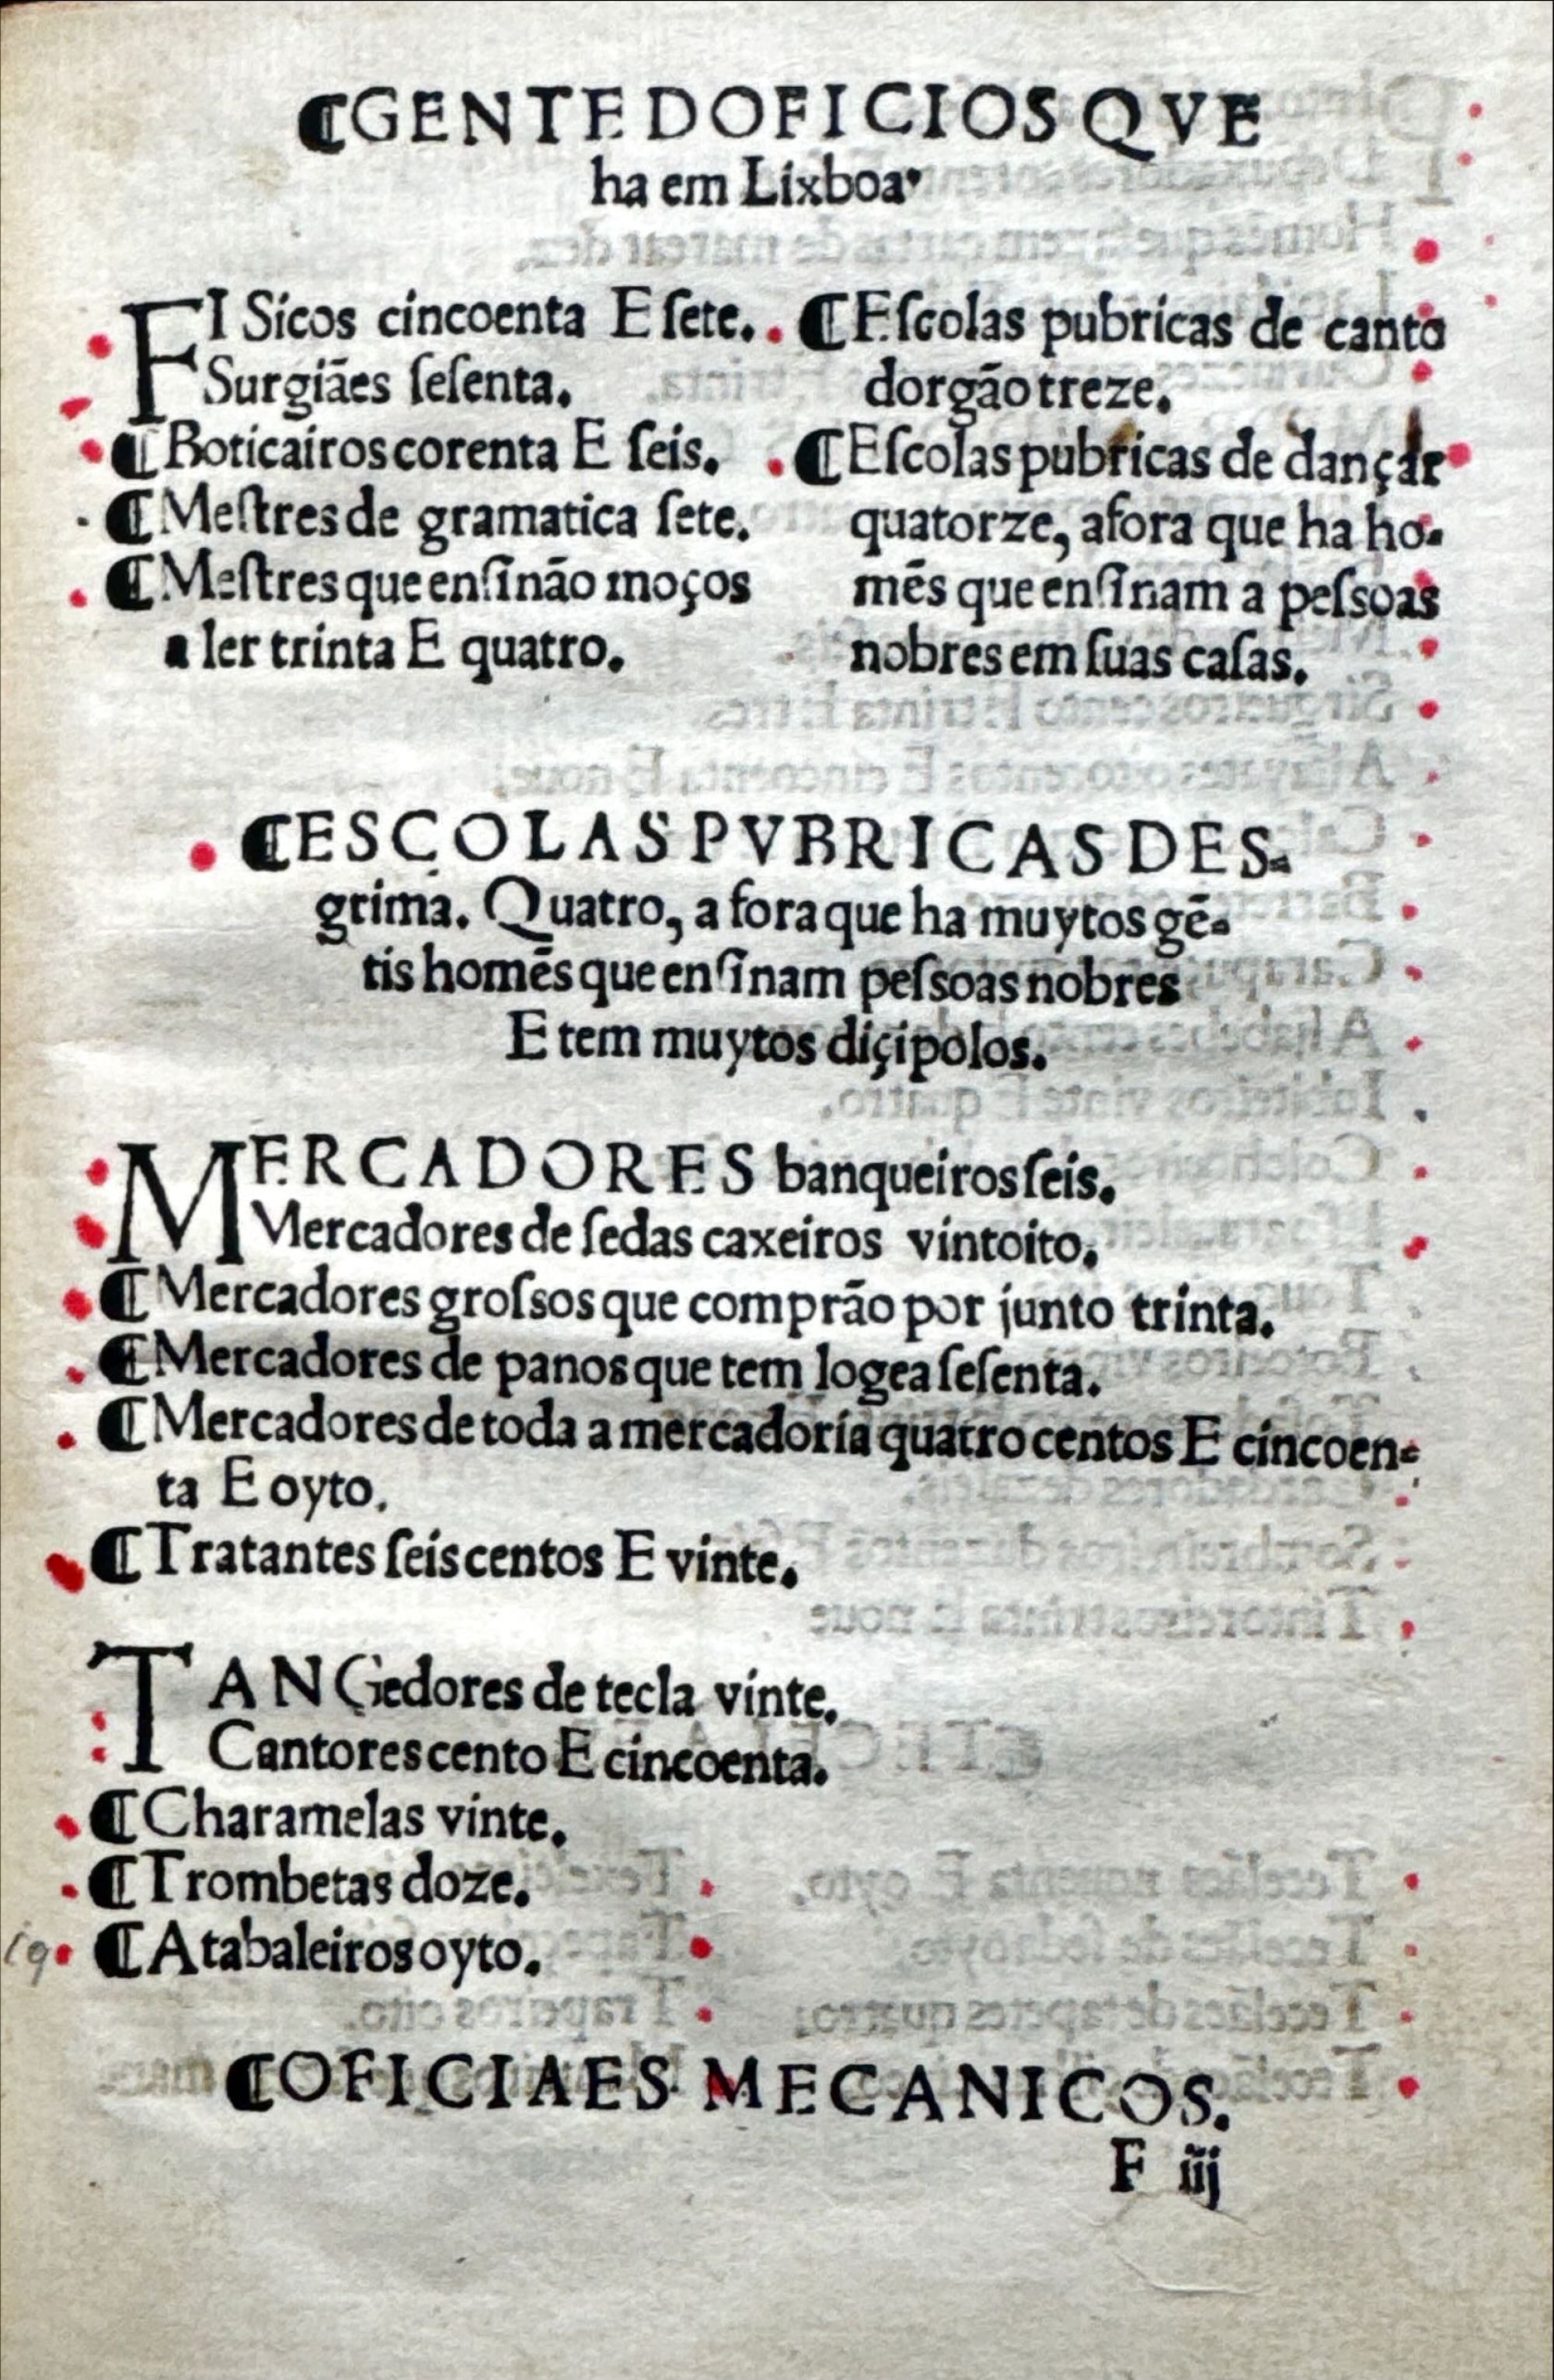 ¶GENTE DOFICIOS QVE
ha em Lixboa.
FISicos cincoenta E ſete.
Surgiães ſeſenta.
¶Boticairos corenta E ſeis.
¶Meſtres de gramatica ſete.
¶Meſtres que enſinão moços
a ler trinta E quatro.
¶Eſcolas pubricas de canto
dorgão treze.
¶Eſcolas pubricas de dançar
quatorze, afora que ha ho-
mẽs que enſinam a peſsoas
nobres em ſuas caſas.
¶ESCOLAS PVBRICAS DES-
grima. Quatro, a fora que ha muytos gẽ-
tis homẽs que enſinam peſsoas nobres
E tem muytos diçipolos.
MERCADORES banqueiros ſeis.
Mercadores de ſedas caxeiros vintoito.
¶Mercadores groſsos que comprão por junto trinta.
¶Mercadores de panos que tem logea ſeſenta.
¶Mercadores de toda a mercadoria quatro centos E cincoen-
ta E oyto.
¶Tratantes ſeis centos E vinte.
TANGedores de tecla vinte.
Cantores cento E cincoenta.
¶Charamelas vinte.
¶Trombetas doze.
¶Atabaleiros oyto.
¶OFICIAES MECANICOS.
F iij